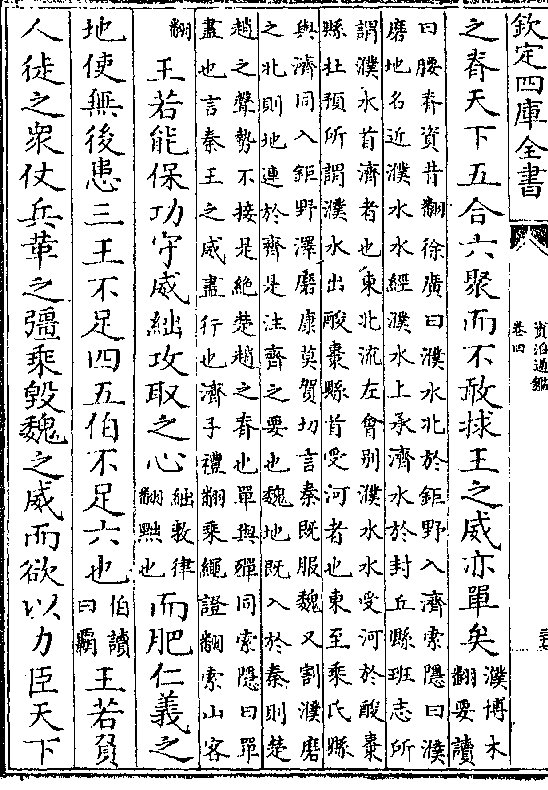 欽定四庫全書
資治通鑑
卷四
之脊天下五合六聚而不敢捄王之威亦單矣濮博木翻要讀
曰腰脊資昔翻徐廣曰濮水北於鉅野入濟索隱曰濮
磨地名近濮水水經濮水上承濟水於封丘縣班志所
謂濮水首濟者也東北流左會別濮水水受河於酸棗
縣杜預所謂濮水出酸棗縣首受河者也東至乘氏縣
與濟同入鉅野澤磨康莫賀切言秦既服魏又割濮磨
之北則地連於齊是注齊之要也魏地既入於秦則楚
趙之聲勢不接是絶楚趙之脊也單與殫同索隱曰單
盡也言秦王之威盡行也濟子禮翻乘繩證翻索山客
翻王若能保功守威絀攻取之心絀敕律翻黜也而肥仁義之
地使無後患三王不足四五伯不足六也伯讀曰霸王若負
人徒之衆仗兵革之彊乘毀魏之威而欲以力臣天下